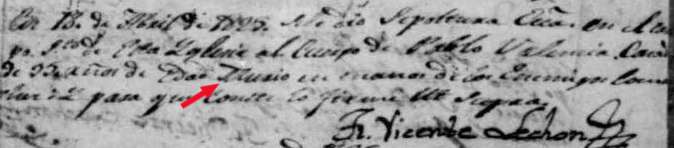 En 13. de Abril de 1825. Se dio Sepoltura Ecca. en el cam
po Sto. de Esta Yglesia al Cuerpo de Pablo Valencia Casado
de 35 años de Edad Murio en manos de los Enemigos
para que Conste lo firme Ut Supra
Fr. Vicente Lechon